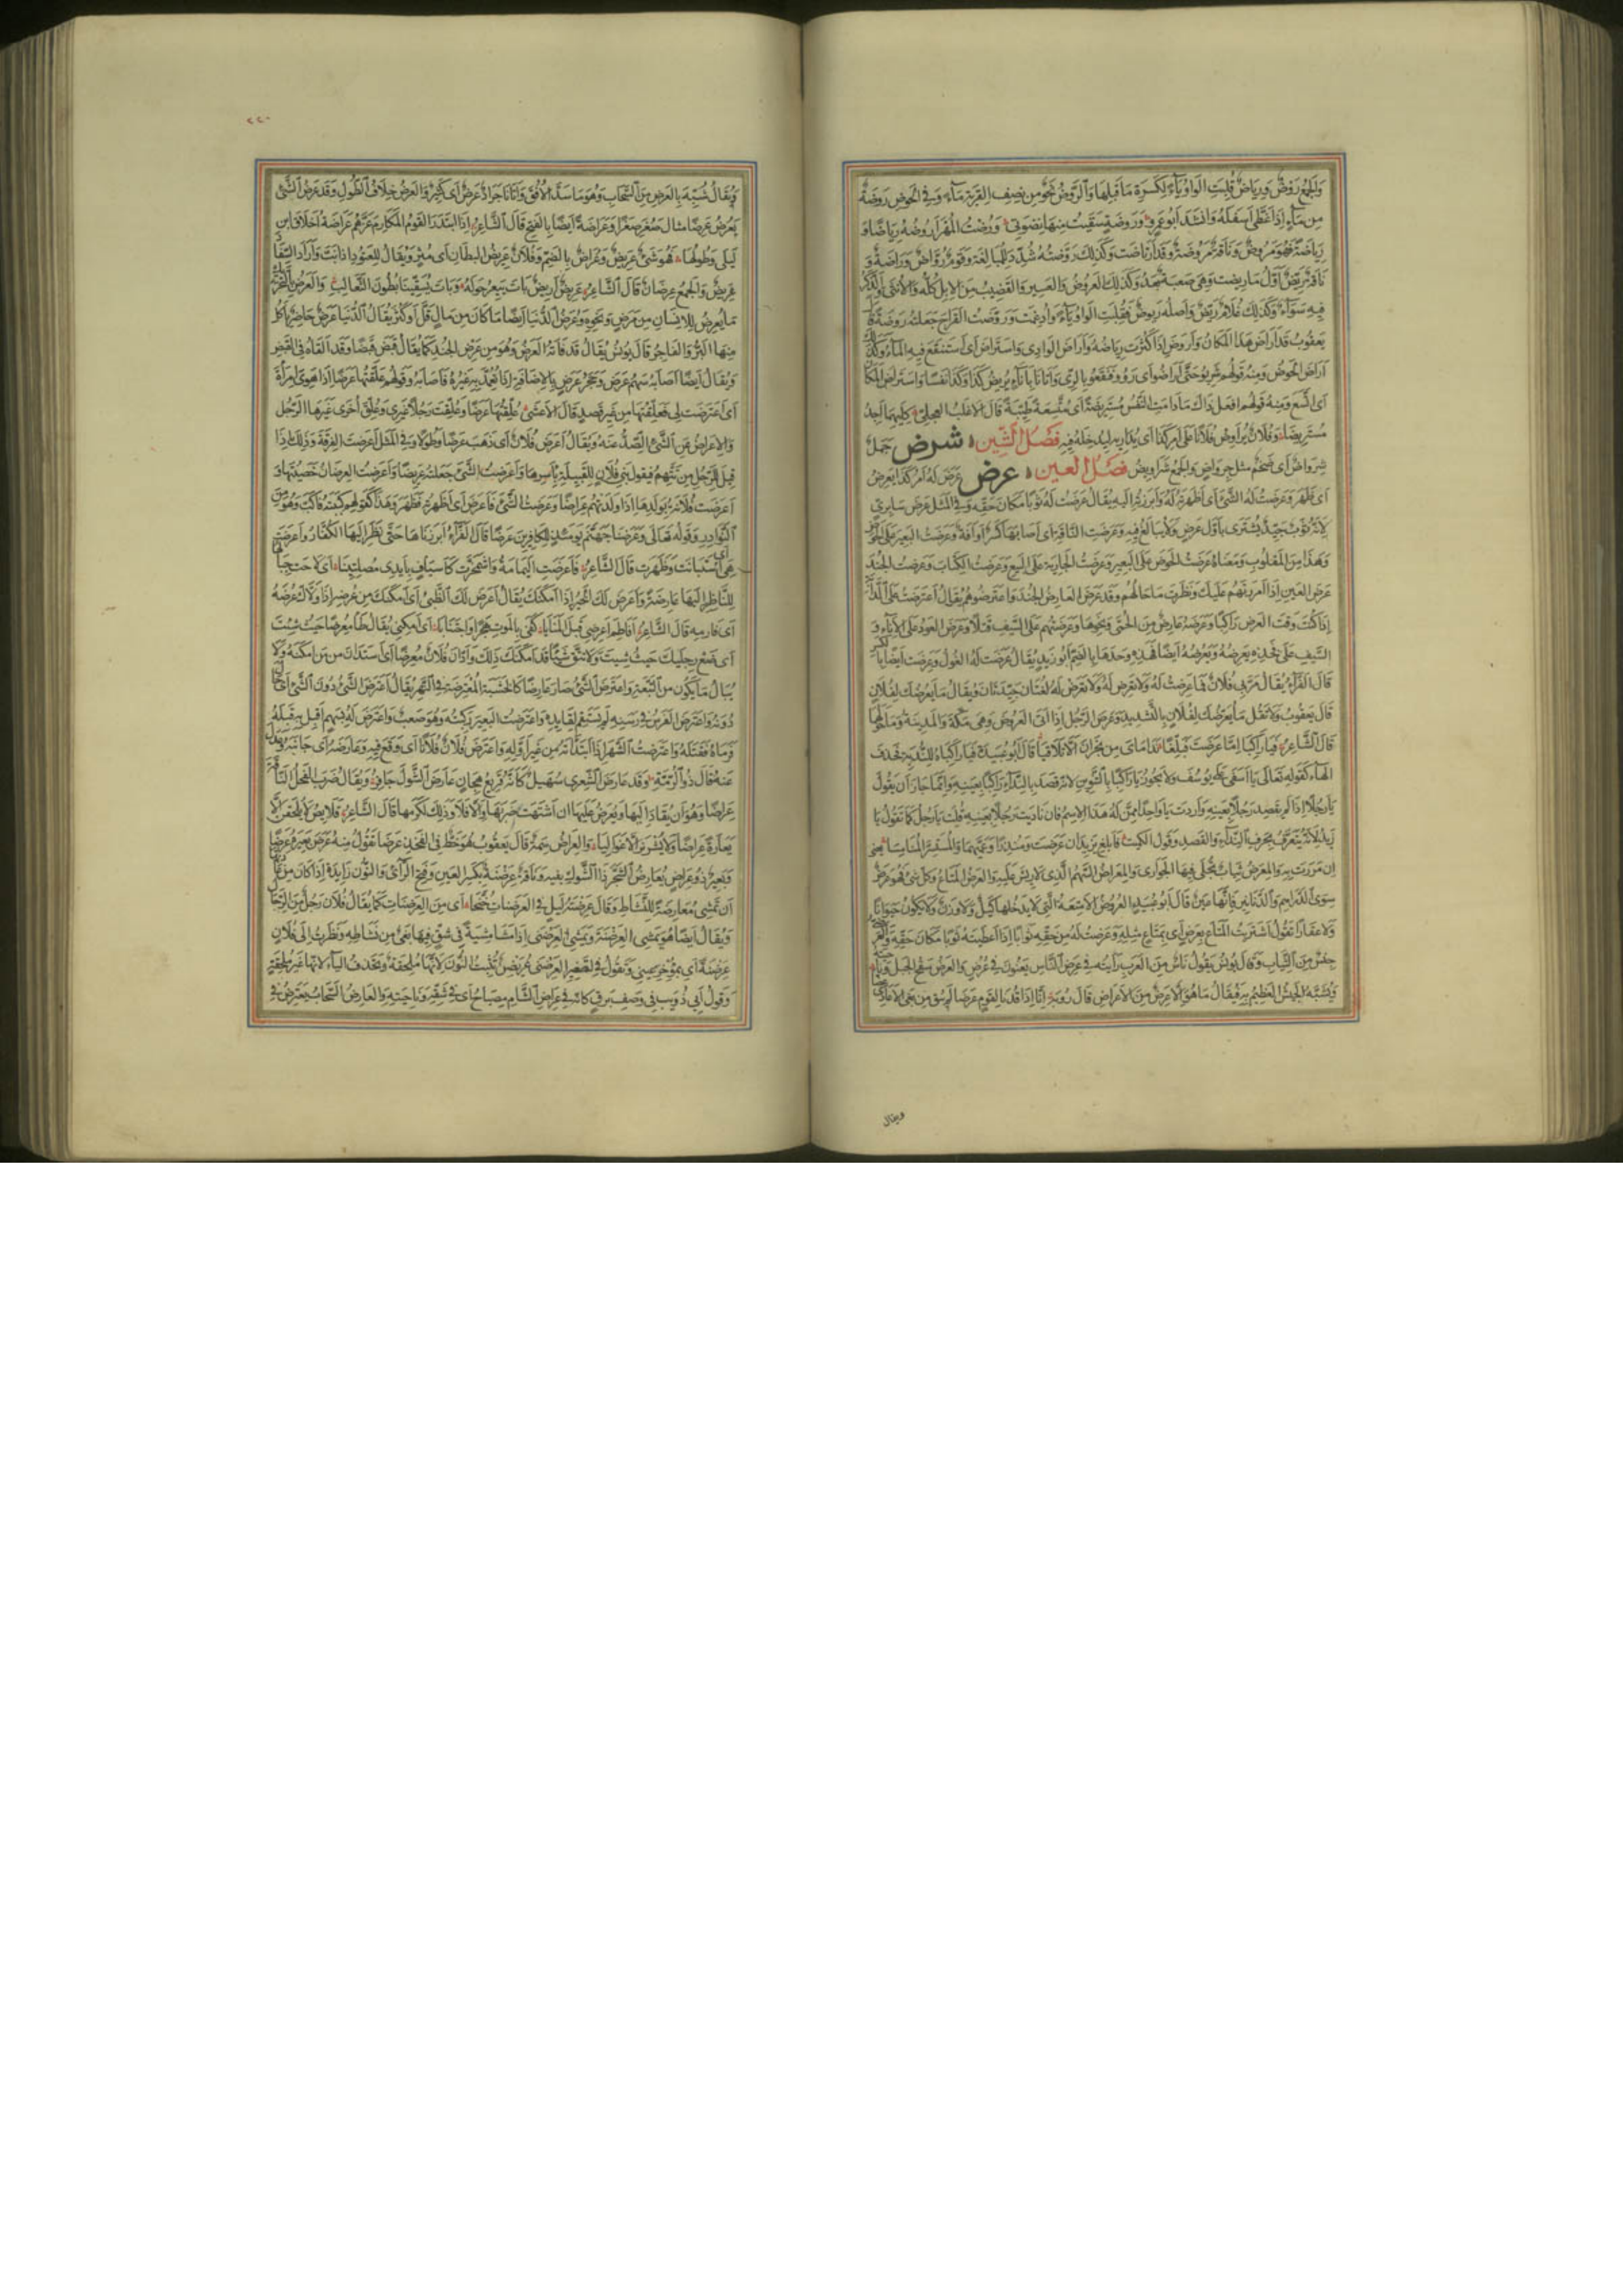 والجمع روض ورياض قلبت الواو ياء لكسرة ما قبلها والروض نحو من نصف القربة ماء وفي الحوض روضة
من ماء اذا غطى اسفله وانشد ابو عمرو وروضة سقيت منها نضوتي ورضت المهر اروضه رياضا و
رياضة فهو مروض وناقة مروضة وقد ارتاضت وكذلك روضته شدد للمبالغة وقوم رواض وراضة و
ناقة ريض اول ما ريضت وهي صعبة بعد وكذلك العروض والعسير والقضيب من الابل كله والانثى والذكر
فيه سواء وكذلك غلام ريض واصله ريوض فقلبت الواو ياء وادغمت وروضت القراح جعلته روضة قال
يعقوب قد اراض هذا المكان واروض اذا كثرت رياضه واراض الوادي واستراض اي استنقع فيه الماء وكذلك
اراض الحوض ومنه قولهم شربوا حتى اراضوا اي رووا فنقعوا بالري واتانا باناء يريض كذا وكذا نفسا واستراض المكان
اي اتسع ومنه قولهم افعل ذاك ما دامت النفس مستريضة اي متسعة طيبة قال الاغلب العجلي كليهما اجيد
مستريضا وفلان يراوض فلانا على امر كذا اي يداريه ليدخله فيه فصل الشين شرض جمل
شرواض اي ضخم مثل جرواض والجمع شراويض فصل العين عرض عرض له امر كذا يعرض
اي ظهر وعرضت له الشئ اي اظهرته له وابرزته اليه يقال عرضت له ثوبا مكان حقه وفي المثل عرض سابري
لانه ثوب جيد يشترى باول عرض ولا يبالغ فيه وعرضت الناقة اي اصابها كسر او آفة وعرضت البعير على الحوض
وهذا من المقلوب ومعناه عرضت الحوض على البعير وعرضت الجارية على البيع وعرضت الكتاب وعرضت الجند
عرض العين اذا امررتهم عليك ونظرت ما حالهم وقد عرض العارض الجند واعترضوهم يقال اعترضت على الدابة
اذا كنت وقت العرض راكبا وعرضه عارض من الحمى ونحوها وعرضتهم على السيف قتلا وعرض العود على الاناء و
السيف على فخذه يعرضه ويعرضه ايضا فهذه وحدها بالضم ابو زيد يقال عرضت له الغول وعرضت ايضا بالكسر
قال الفراء يقال مر بي فلان فما عرضت له ولا تعرض له ولا تعرض له لغتان جيدتان ويقال ما يعرضك لفلان
قال يعقوب ولا تقل ما يعرضك لفلان بالتشديد وعرض الرجل اذا اتى العروض وهي مكة والمدينة وما حولهما
قال الشاعر فيا راكبا اما عرضت فبلغا نداماي من نجران ان لا تلاقيا قال ابو عبيدة فيا راكباه للندبة فحذف
الهاء كقوله تعالى يا اسفى على يوسف ولا يجوز يا راكبا بالتنوين لانه قصد بالنداء راكبا بعينه وانما جاز ان يقول
يا رجلا اذا لم يقصد رجلا بعينه واردت يا واحدا ممن له هذا الاسم فان ناديت رجلا بعينه قلت يا رجل كما تقول يا
زيد لانه يتعرف بحرف النداء والقصد وقول الكميت فابلغ يزيد ان عرضت ومنذرا وعميهما والمستسر المنامسا يعني
ان مررت به والمعرض ثياب تجلى فيها الجواري والمعراض السهم الذي لا ريش عليه والعرض المتاع وكل شئ فهو عرض
سوى الدراهم والدنانير فانها عين قال ابو عبيد العروض الامتعة التي لا يدخلها كيل ولا وزن ولا يكون حيوانا
ولا عقارا تقول اشتريت المتاع بعرض اي بمتاع مثله وعرضت له من حقه ثوبا اذا اعطيته ثوبا مكان حقه والعرض
جنس من الثياب وقال يونس يقول ناس من العرب رايته في عرض الناس يعنون في عرض والعرض سفح الجبل وناحيته
ويشبه الجيش العظيم به فيقال ما هو الا عرض من الاعراض قال روبة انا اذا قدنا لقوم عرضا لم نبق من بغي الاعادي عضا
ويقال
٢٢٠
ويقال شبه بالعرض من السحاب وهو ما سد الافق واتانا جراد عرض اي كثير والعرض خلاف الطول وقد عرض الشئ
يعرض عرضا مثال صغر صغرا وعراضة ايضا بالفتح قال الشاعر اذا ابتدر القوم المكارم عزهم عراضة اخلاق ابن
ليلى وطولها فهو شئ عريض وعراض بالضم وفلان عريض البطان اي مثر ويقال للعتود اذا نب واراد السفاد
عريض والجمع عرضان قال الشاعر عريض اريض بات ييعر حوله وبات يسقينا بطون الثعالب والعرض بالتحريك
ما يعرض للانسان من مرض ونحوه وعرض الدنيا ايضا ما كان من مال قل او كثر يقال الدنيا عرض حاضر ياكل
منها البر والفاجر قال يونس يقال قد فاته العرض وهو من عرض الجند كما يقال قبض قبضا وقد القاه في القبض
ويقال ايضا اصابه سهم عرض وحجر عرض بالاضافة اذا تعمد به غيره فاصابه وقولهم علقتها عرضا اذا هوي امرأة
اي اعترضت لي فعلقتها من غير قصد قال الاعشى علقتها عرضا وعلقت رجلا غيري وعلق اخرى غيرها الرجل
والاعراض عن الشئ الصد عنه ويقال اعرض فلان اي ذهب عرضا وطولا وفي المثل اعرضت القرفة وذلك اذا
قيل للرجل من تتهم فيقول بني فلان للقبيلة باسرها واعرضت الشئ جعلته عريضا واعرضت العرضان خصيتها و
اعرضت فلانة بولدها اذا ولدتهم عراضا وعرضت الشئ فاعرض اي اظهرته فظهر وهذا كقولهم كببته فاكب وهو من
النوادر وقوله تعالى وعرضنا جهنم يومئذ للكافرين عرضا قال الفراء ابرزناها حتى نظر اليها الكفار واعرضت
هي اي استبانت وظهرت قال الشاعر فاعرضت اليمامة واشمخرت كاسياف بايدي مصلتينا اي لاحت جبالها
للناظر اليها عارضة واعرض لك الخير اذا امكنك يقال اعرض لك الظبي اي امكنك من عرضه اذا ولاك عرضه
اي فارمه قال الشاعر افاطم اعرضي قبل المنايا كفى بالموت هجرا واجتنابا اي امكني يقال طأ معرضا حيث شئت
اي ضع رجليك حيث شئت ولا تتق شيئا قد امكنك ذلك وادان فلان معرضا اي استدان من من امكنه ولا
يبال ما يكون من التبعة واعترض الشئ صار عارضا كالخشبة المعترضة في النهر يقال اعترض الشئ دون الشئ اي حال
دونه واعترض الفرس في رسنه لم يستقم لقايده واعترضت البعير ركبته وهو صعب واعترض له بسهم اقبل به قبله
فرماه فقتله واعترضت الشهر اذا ابتداته من غير اوله واعترض فلان فلانا اي وقع فيه وعارضه اي جانبه وعدل
عنه قال ذو الرمة وقد عارض الشعرى سهيل كانه قريع هجان عارض الشول جافر ويقال ضرب الفحل الناقة
عراضا وهو ان يقاد اليها ويعرض عليها ان اشتهت ضربها والا فلا وذلك لكرمها قال الشاعر قلايص لا يلقحن الا
يعارة عراضا ولا يشرين الا غواليا والعراض سمة قال يعقوب هو خط في الفخذ عرضا تقول منه عرض بعيره عرضا
وبعير ذو عراض يعارض الشجر ذا الشوك بفيه وناقة عرضنة بكسر العين وفتح الراء والنون زايدة اذا كان من عادتها
ان تمشي معارضة للنشاط وقال عرضنة ليل في العرضنات جنحا اي من العرضنات كما يقال فلان رجل من الرجال
ويقال ايضا هو يمشي العرضنة ويمشي العرضنى اذا مشا مشية في شق فيها بغي من نشاطه ونظرت الى فلان
عرضنة اي بمؤخر عيني وتقول في تصغير العرضنى عريضن تثبت النون لانها ملحقة وتحذف الياء لانها غير ملحقة
وقول ابي ذويب في وصف برق كانه في عراض الشام مصباح اي في شقه وناحيته والعارض السحاب يعترض في